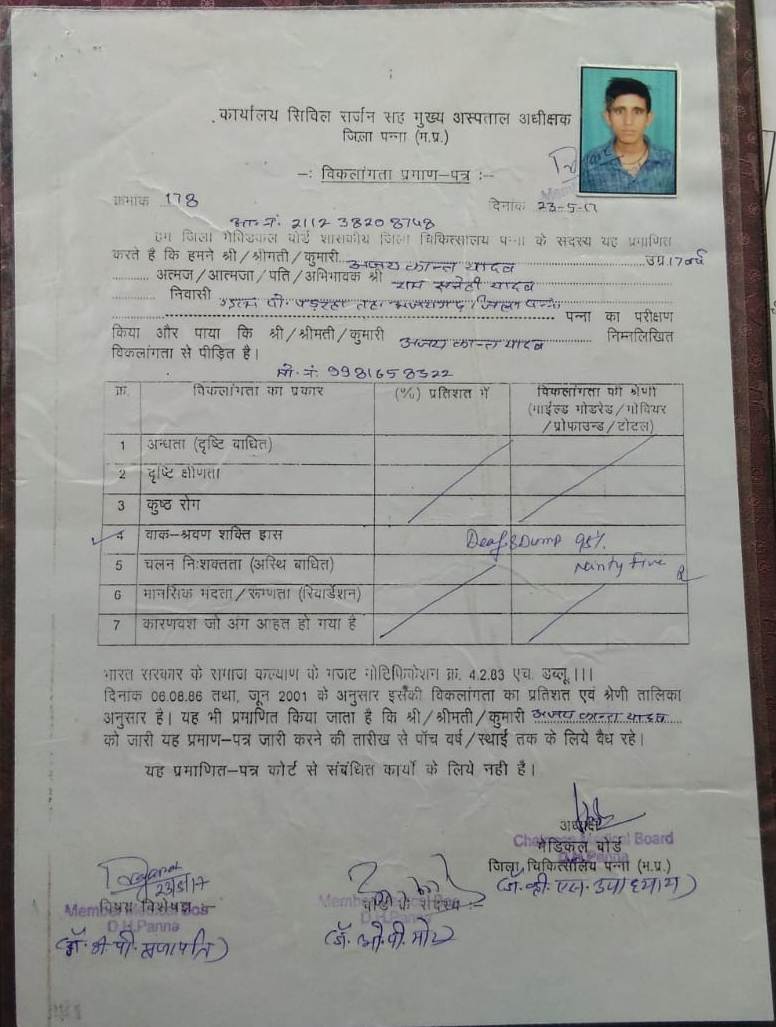 कार्यालय सिविल सर्जन सह मुख्य अस्पताल अधीक्षक
जिला पन्ना (म.प्र.)
-: विकलांगता प्रमाण-पत्र :-
क्रमांक 178
दिनांक 23-5-17
2112 3820 8748
हम जिला मेडिकल बोर्ड शासकीय जिला चिकित्सालय पन्ना के सदस्य यह प्रमाणित
करते है कि हमने श्री/श्रीमती/कुमारी अजय कान्त यादव उम्र 17 वर्ष
आत्मज/आत्मजा/पति/अभिभावक श्री राम सनेही यादव
निवासी जिला पन्ना
पन्ना का परीक्षण
किया और पाया कि श्री/श्रीमती/कुमारी अजय कान्त यादव निम्नलिखित
विकलांगता से पीड़ित है।
मो. नं. 9981658322
क्र. विकलांगता का प्रकार (%) प्रतिशत में विकलांगता की श्रेणी
(माईल्ड मोडरेड/मोवियर
/प्रोफाउन्ड/टोटल)
1 अन्धता (दृष्टि बाधित)
2 दृष्टि क्षीणता
3 कुष्ठ रोग
4 वाक-श्रवण शक्ति ह्रास Deaf & Dump 95%
5 चलन निःशक्तता (अस्थि बाधित) Ninty five
6 मानसिक मदता/रूग्णता (रिटार्डेशन)
7 कारणवश जो अंग आहत हो गया है
भारत सरकार के समाज कल्याण के गजट नोटिफिकेशन क्र. 4.2.83 एच. डब्लू.।।।
दिनांक 06.08.86 तथा, जून 2001 के अनुसार इसकी विकलांगता का प्रतिशत एवं श्रेणी तालिका
अनुसार है। यह भी प्रमाणित किया जाता है कि श्री/श्रीमती/कुमारी अजय कान्त यादव
को जारी यह प्रमाण-पत्र जारी करने की तारीख से पॉच वर्ष/स्थाई तक के लिये वैध रहे।
यह प्रमाणित-पत्र कोर्ट से संबंधित कार्यो के लिये नही है।
अध्यक्ष
Chairman Medical Board
D.H.Panna
मेडिकल बोर्ड
जिला चिकित्सालय पन्ना (म.प्र.)
(डॉ. व्ही. एस. उपाध्याय)
23/5/17
विषय विशेषज्ञ
Member Medical Boa
D.H.Panna
बोर्ड के सदस्य :-
Member Medical Boa
D.H.Panna